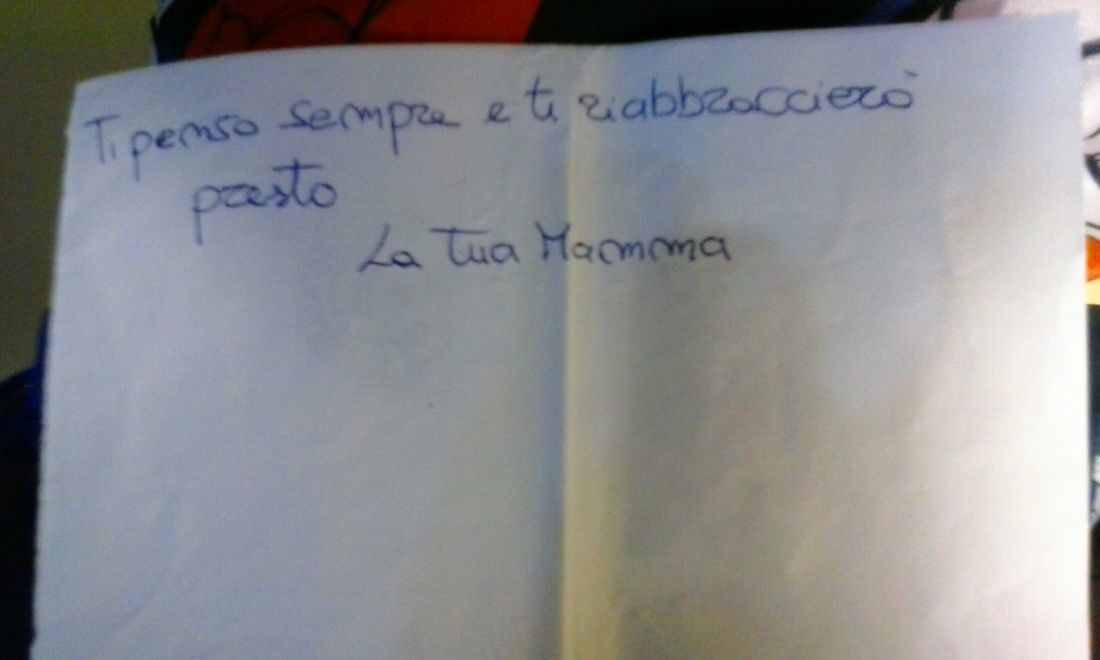 Ti penso sempre e ti riabbraccierò
presto
La Tua Mamma